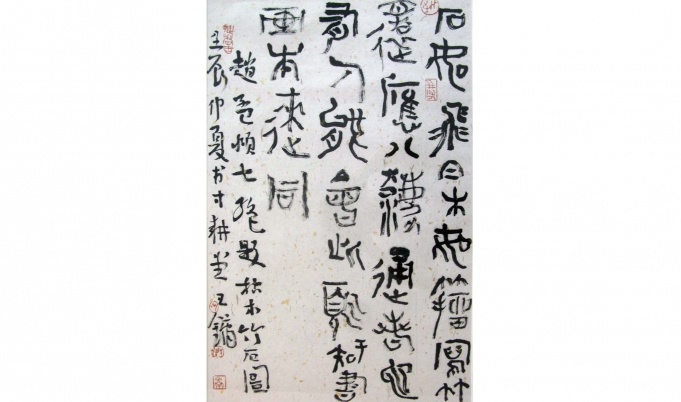 石如飛白木如籀寫竹
還應八灋通若也
有人能會此須知書
画本來同
趙孟頫七絕題枯木竹石圖
壬辰中夏书寸耕堂王鏞